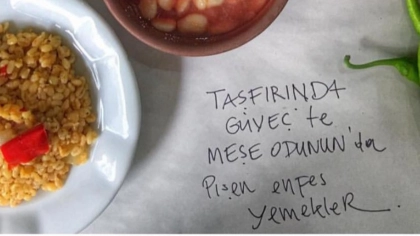 TAŞFIRINDA
GÜVEÇ'te
MEŞE ODUNUN'da
Pişen enfes
yemekler.